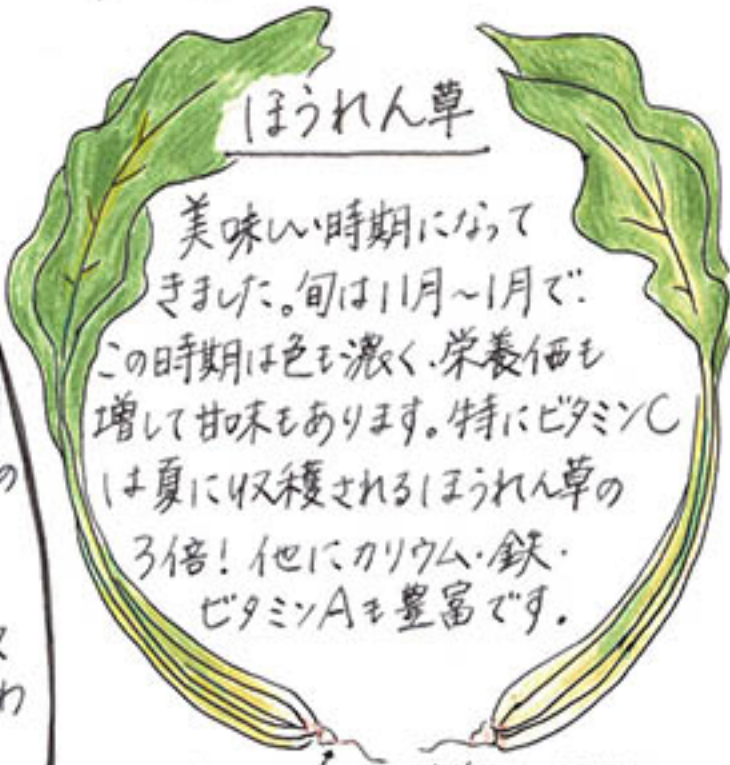 ほうれん草
美味しい時期になって
きました。旬は11月～1月で、
この時期は色も濃く、栄養価も
増して甘味もあります。特にビタミンC
は夏に収穫されるほうれん草の
3倍！他にカリウム・鉄・
ビタミンAも豊富です。
の
わ